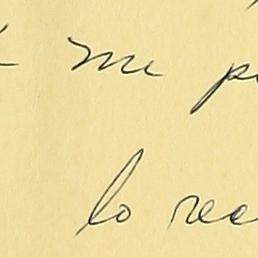 me p
lo rec